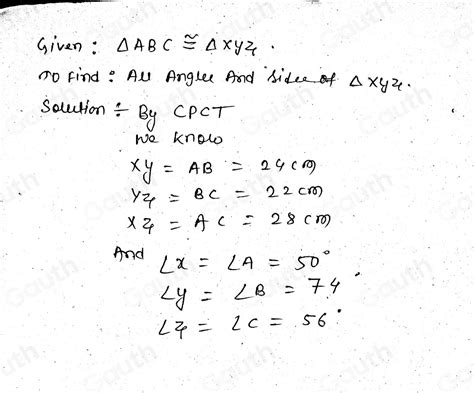 Given : △ABC ≅ △XYZ.
To find : All Angles And Sides of △XYZ.
Solution ÷ By CPCT
We know
XY = AB = 24 cm
YZ = BC = 22 cm
XZ = AC = 28 cm
And ∠x = ∠A = 50°
∠y = ∠B = 74°
∠Z = ∠C = 56°